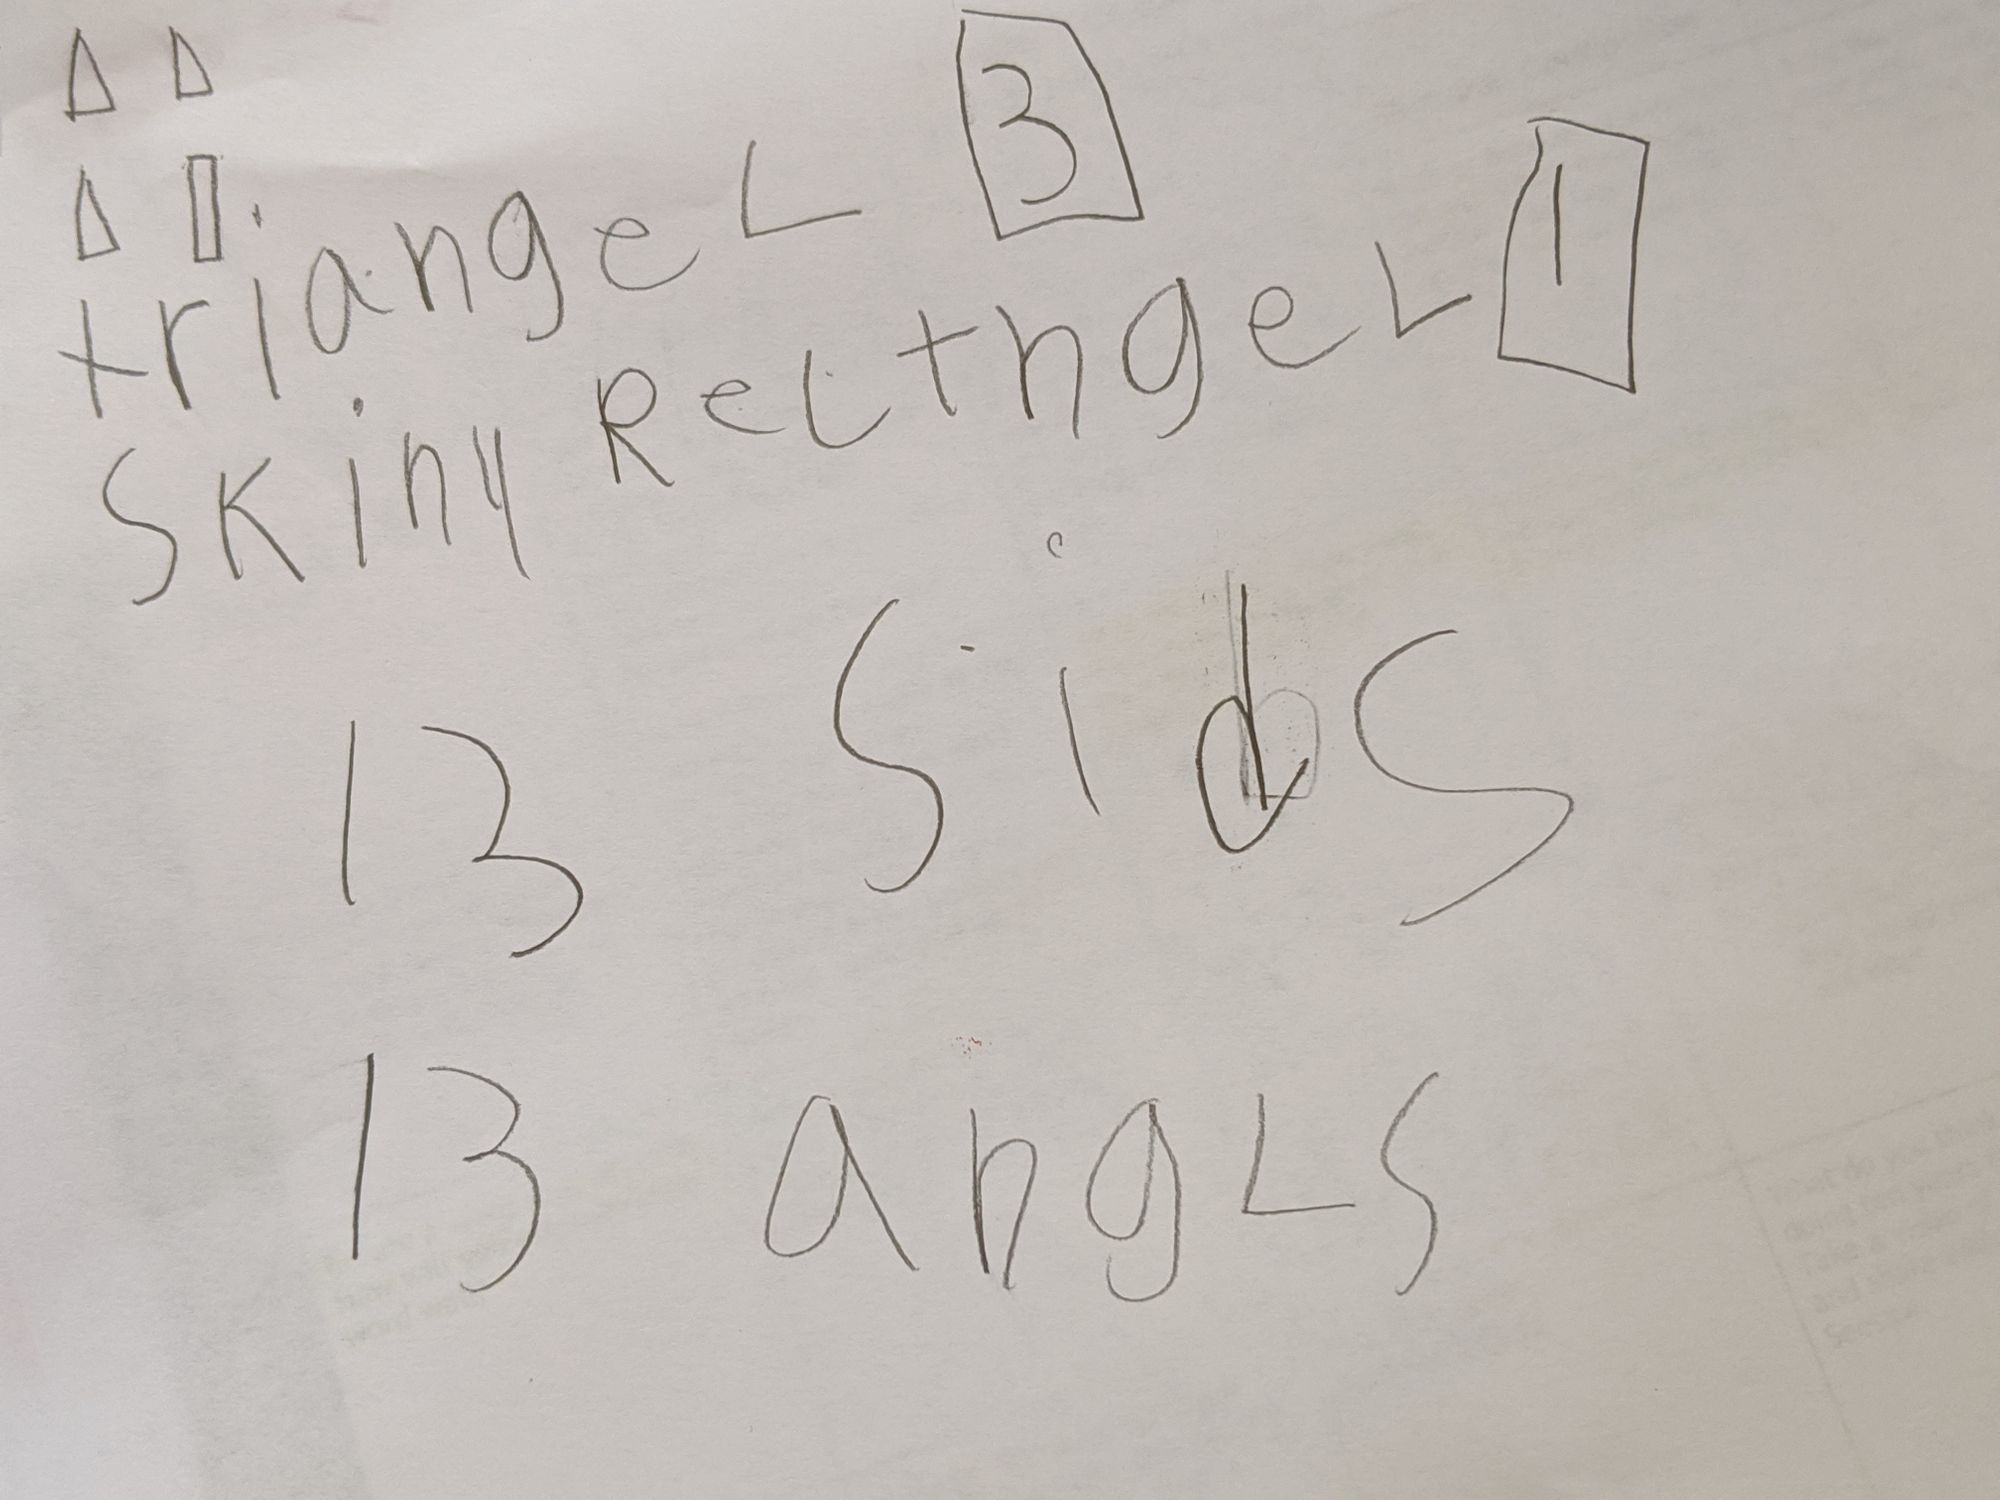 triangel 3
skiny Rectngel 1
13 sids
13 angls